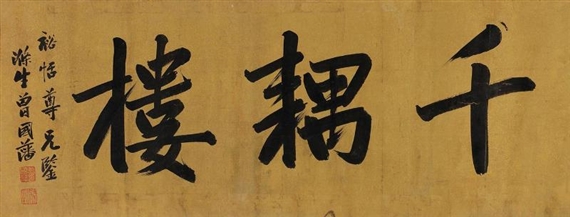 千耦樓
裕恬尊兄鑒
滌生曾國藩